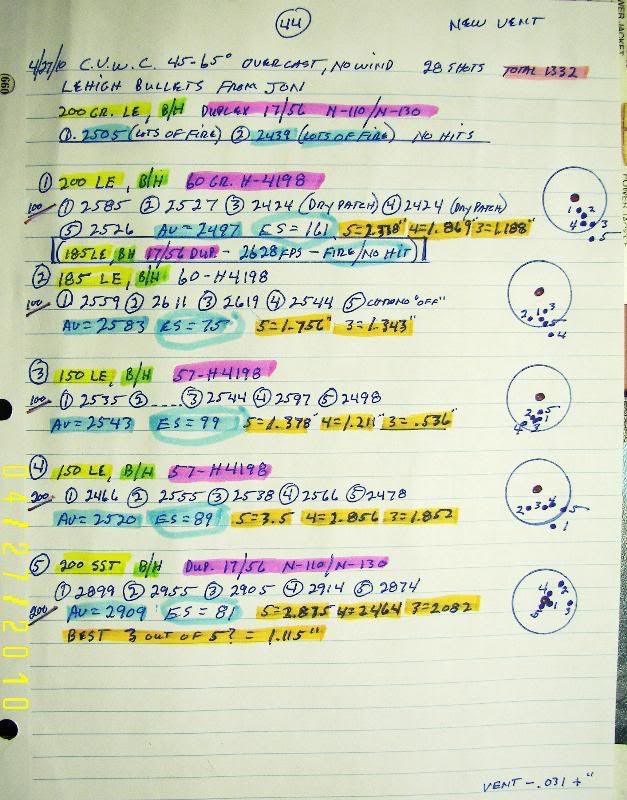 44
NEW VENT
4/27/10 C.V.W.C. 45-65° OVERCAST, NO WIND 28 SHOTS TOTAL 1332
LEHIGH BULLETS FROM JON
200 GR. LE, B/H DUPLEX 17/56 N-110/N-130
①. 2505 (LOTS OF FIRE) ② 2439 (LOTS OF FIRE) NO HITS
① 200 LE, B/H 60 GR. H-4198
100 ① 2585 ② 2527 ③ 2424 (DRY PATCH) ④ 2424 (DRY PATCH)
⑤ 2526 AV = 2497 ES = 161 5=2.338" 4=1.869" 3=1.188"
185 LE BH 17/56 DUP - 2628 FPS - FIRE/NO HIT
② 185 LE, B/H 60-H4198
100 ① 2559 ② 2611 ③ 2619 ④ 2544 ⑤ CHRONO "OFF"
AV = 2583 ES = 75 5=1.756" 3=1.343"
③ 150 LE, B/H 57-H4198
100 ① 2535 ② --- ③ 2544 ④ 2597 ⑤ 2498
AV = 2543 ES = 99 5=1.378" 4=1.211" 3=.536"
④ 150 LE, B/H 57-H4198
200 ① 2466 ② 2555 ③ 2538 ④ 2566 ⑤ 2478
AV = 2520 ES = 89 5=3.5 4=2.856 3=1.852
⑤ 200 SST B/H DUP. 17/56 N-110/N-130
① 2899 ② 2955 ③ 2905 ④ 2914 ⑤ 2874
200 AV = 2909 ES = 81 5=2.835 4=2464 3=2082
BEST 3 OUT OF 5? = 1.115"
VENT - .031 + "
04/27/2010